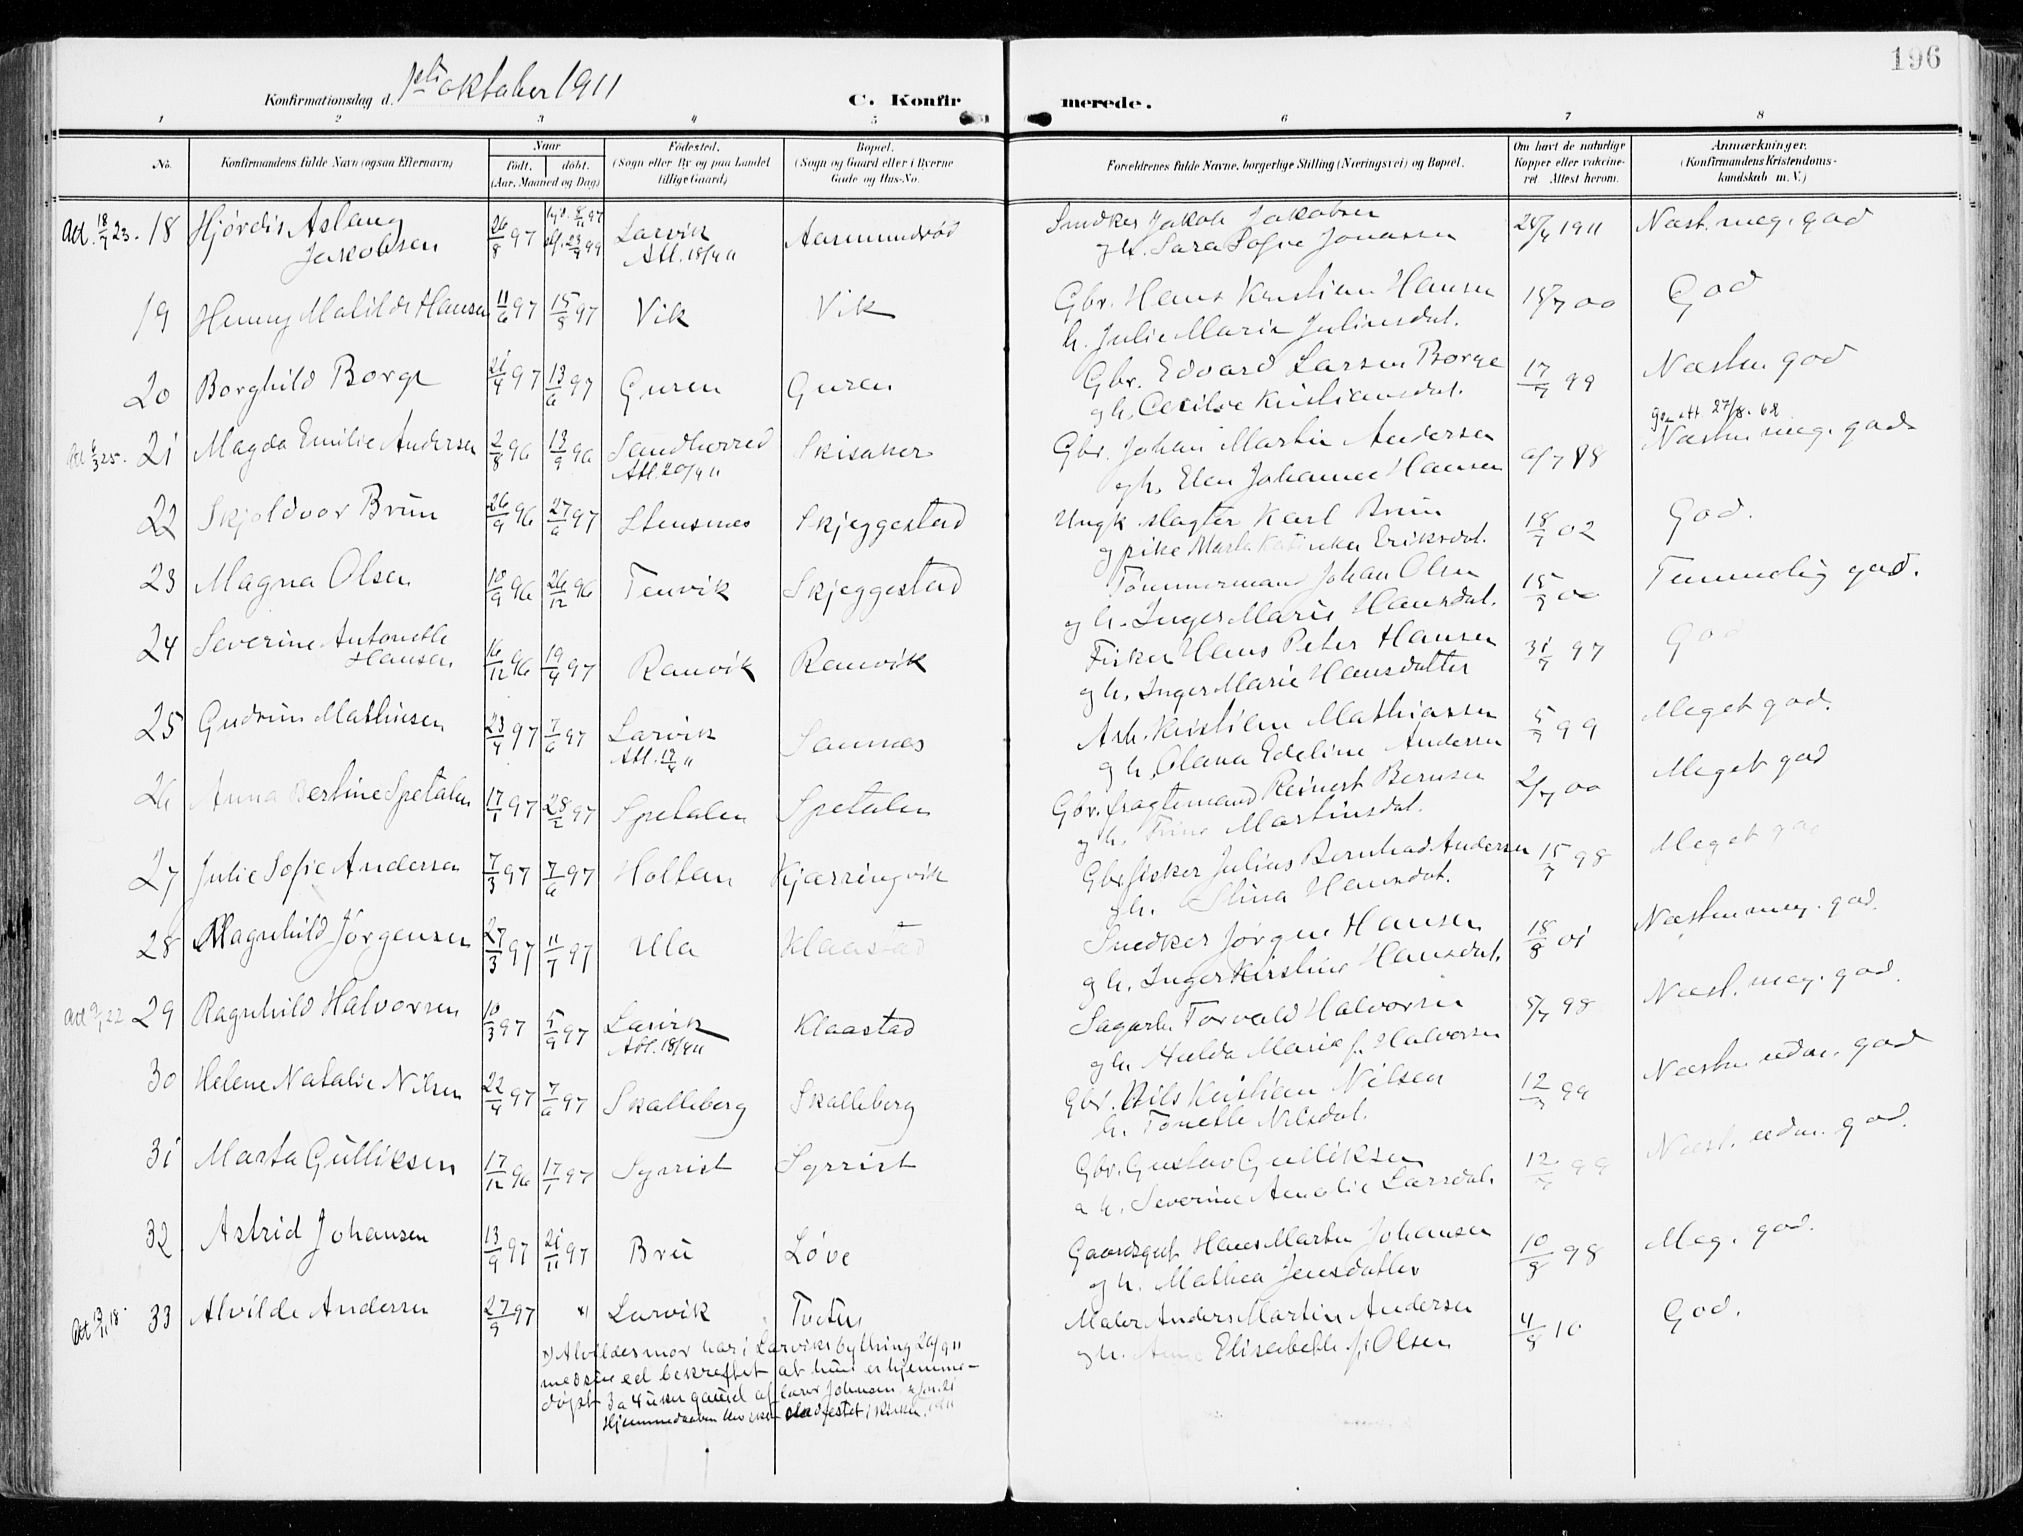 196
Konfirmationsdag d. 1ste oktober 1911
C. Konfirmerede.
1 2 3 4 5 6 7 8
No. Konfirmandens fulde Navn (ogsaa Efternavn) Naar født. døbt. (Aar, Maaned og Dag) Fødested. (Sogn eller By og paa Landet tillige Gaard) Bopæl. (Sogn og Gaard eller i Byerne Gade og Hus-No. Forældrenes fulde Navne, borgerlige Stilling (Næringsvei) og Bopæl. Om havt de naturlige Kopper eller vakcineret Attest herom. Anmærkninger. (Konfirmandens Kristendomskundskab m. V.)
Att. 18/7 23. 18 Hjørdis Aslaug Jakobsen 26/8 97 Larvik Att. 18/4 11 Aasmundrød Snedker Jakob Jakobsen og h. Sara Sofie Jonassen 1911 Næst. meg. god
19 Henny Malilde Hansen 11/6 97 15/8 97 Vik Vik Gbr. Hans Kristian Hansen h. Julie Marie Juliusdat. 18/7 00 God
20 Borghild Borge 21/4 97 13/6 97 Guren Guren Gbr. Edvard Larsen Borge og h. Cecilie Kristiansdat. 17/7 99 Næsten god
21 Magda Emilie Andersen 2/8 96 13/9 96 Sandherred Att. 20/4 11 Skisaker Gbr. Johan Martin Andersen og h. Elen Johanne Hansen 98 att. 27/8. 62 Næsten meg. god
22 Skjoldvor Brun 26/9 96 27/6 97 Stensnes Skjeggestad Ungk. slagter Karl Brun og pike Marta Katinka Eriksdat. 18/7 02 God.
23 Magna Olsen 10/9 96 26/12 96 Tenvik Skjeggestad Tømmermand Johan Olsen og h. Inger Marie Hansdat. 15/9 00 Temmelig god.
24 Severine Antonette Hansen 16/12 96 19/4 97 Ranvik Ranvik Fisker Hans Peter Hansen og h. Inger Marie Hansdatter 31/7 97 God
25 Gudrun Mathisen 23/4 97 7/6 97 Larvik Att. 17/4 11 Sannes Arb. Kristian Mathiassen og h. Olava Edeline Andersen 5/7 99 Meget god.
26 Anna Bertine Spetalen 17/1 97 28/2 97 Spetalen Spetalen Gbr. fragtemand Reinert Berntsen og h. Trine Martinsdat. 2/7 00 Meget god
27 Julie Sofie Andersen 7/3 97 7/6 97 Holtan Kjærringvik Gbr fisker Julius Bernhad Andersen og h. Stina Hansdat. 15/7 98 Meget god
28 Magnhild Jørgensen 27/3 97 11/7 97 Ula Klaastad Snedker Jørgen Hansen og h. Inger Kirstine Hansdat. 18/8 01 Næsten meg. god.
Att 22 29 Ragnhild Halvorsen 10/3 97 5/9 97 Larvik Att. 18/4 11 Klaastad Sagarb. Torvald Halvorsen og h. Hulda Marie f. Halvorsen 5/7 98 Næst. meg. god.
30 Helene Natalie Nilsen 22/4 97 7/6 97 Skalleberg Skalleberg Gbr. Nils Kristian Nilsen h. Tonette Nilsdat. 12/7 99 Næsten udm. god
31 Marta Gulliksen 17/12 96 17/1 97 Syrrist Syrrist Gbr. Gustav Gulliksen h. Severine Amalie Larsdat. 12/7 99 Næst. udm. god.
32 Astrid Johansen 13/9 97 21/11 97 Bru Løve Gaardsgut Hans Martin Johansen og h. Mathea Jensdatter 10/8 98 Meg. god.
Att 18 33 Alvilde Andersen 27/9 97 x) Larvik Tveten Maler Anders Martin Andersen og h. Anna Elisabeth f. Olsen 4/8 10 God.
x) Alvildes mor har i Larviks bytting 26/9 11
med sin ed bekræftet at hun er hjemme-
døpt 3 a 4 uker gammel af
Hjemmedaaben stadfestet i kirken